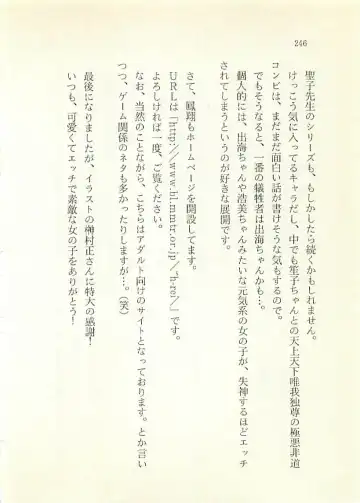 246
聖子先生のシリーズも、もしかしたら続くかもしれません。
けっこう気に入ってるキャラだし、中でも笙子ちゃんとの天上天下唯我独尊の極悪非道
コンビは、まだまだ面白い話が書けそうな気もするので。
でもそうなると、一番の犠牲者は出海ちゃんかも…。
個人的には、出海ちゃんや浩美ちゃんみたいな元気系の女の子が、失神するほどエッチ
されてしまうというのが好きな展開です。
さて、鳳翔もホームページを開設してます。
URLは「http://www.hl.mmtr.or.jp/~h-ro/」です。
よろしければ一度、ご覧ください。
なお、当然のことながら、こちらはアダルト向けのサイトとなっております。とか言い
つつ、ゲーム関係のネタも多かったりしますが…。(笑)
最後になりましたが、イラストの榊村正さんに特大の感謝！
いつも、可愛くてエッチで素敵な女の子をありがとう！